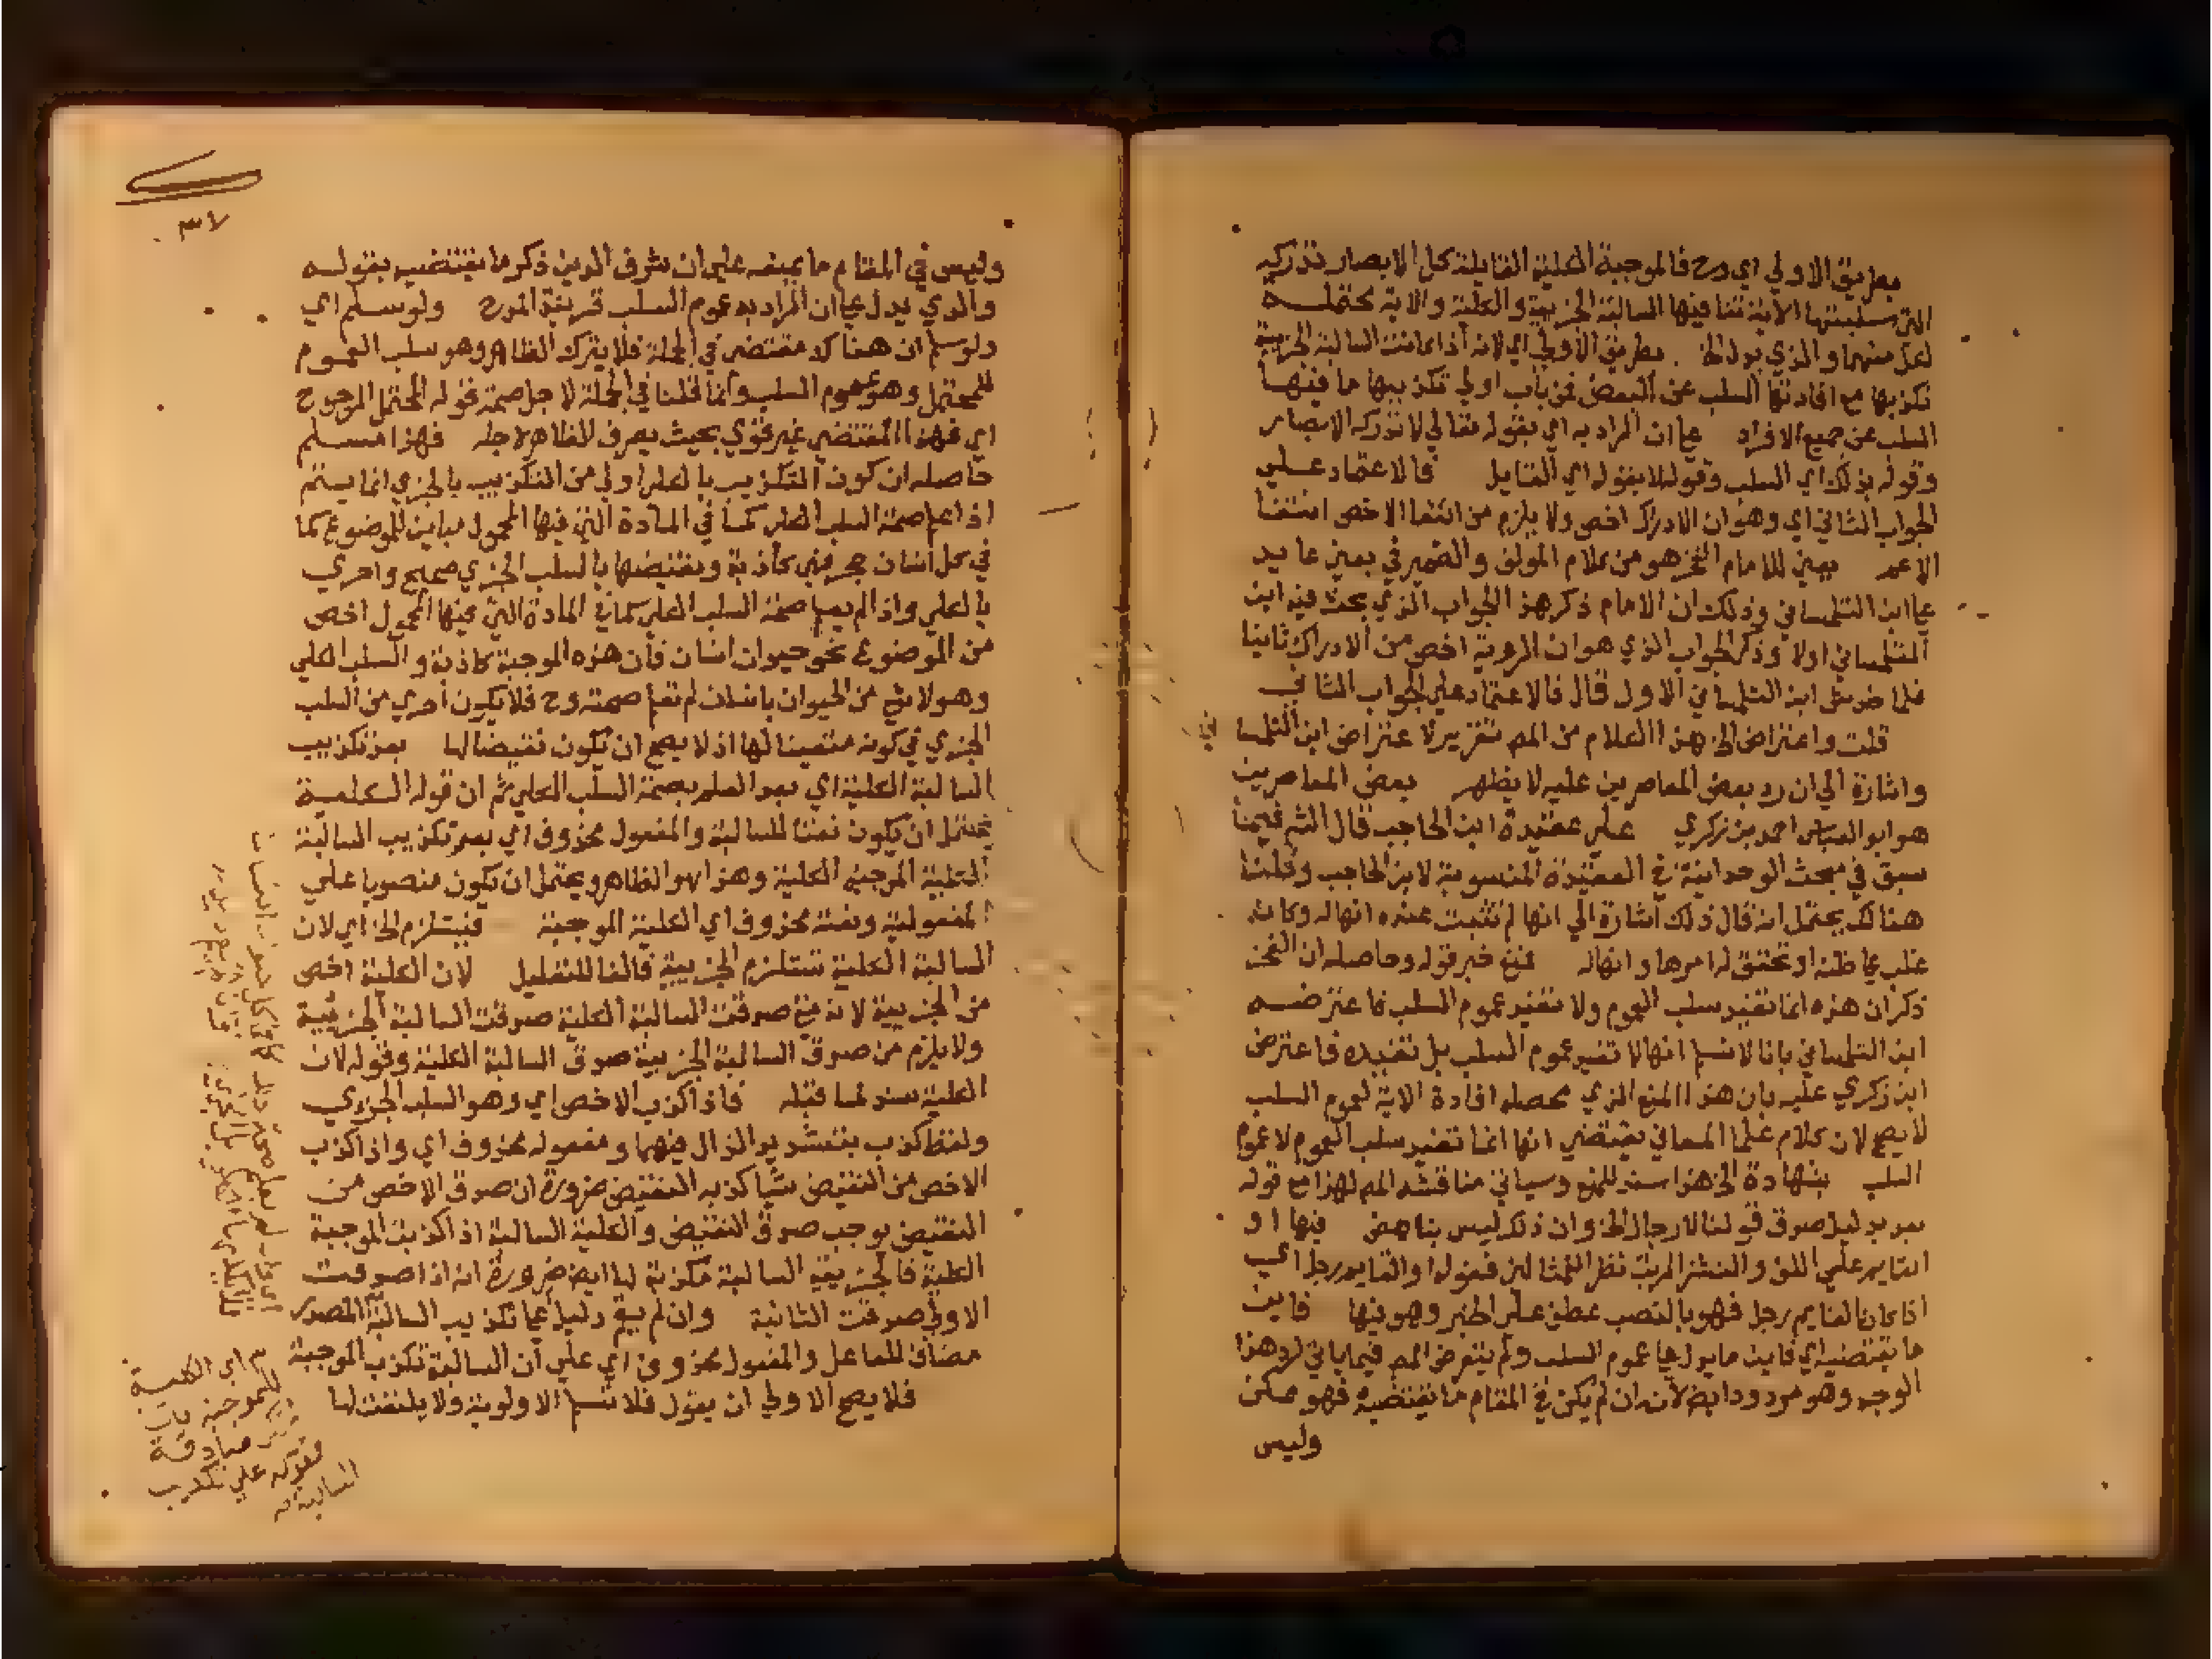 بطريق الاولي اي وح فالموجبة الكلية القايلة كل الابصار تدركه
التي سلبتها الاية تنافيها السالبة الجزيية والكلية والاية محتملة
لكل منهما والذي يدل الخ بطريق الاولي اي لانه اذا كانت السالبة الجزيية
تكذبها مع افادتها السلب عن البعض فمن باب اولي تكذيبها ما فيها
السلب عن جميع الافراد علي ان المراد به اي بقوله تعالي لا تدركه الابصار
وقوله بذلك اي السلب وقوله لا يقوله اي القايل فالاعتماد علي
الجواب الثاني اي وهو ان الادراك اخص ولا يلزم من انتفا الاخص انتفا
الاعم يعني للامام الفخر هو من كلام المولف والضمير في يعني عايد
علي ابن التلمساني وذلك ان الامام ذكر هذ الجواب الذي بحث فيه ابن
التلمساني اولا وذكر الجواب الذي هو ان الروية اخص من الادراك ثانيا
فلما خدش ابن التلمساني الاول قال فالاعتماد علي الجواب الثاني
قلت واعتراض الخ هذا الكلام من المص تقرير لاعتراض ابن التلمساني
واشارة الي ان رد بعض المعاصرين عليه لا يظهر بعض المعاصرين
هو ابو العباس احمد بن زكري علي عقيدة ابن الحاجب قال الش فيما
سبق في مبحث الوحدانية في العقيدة المنسوبة لابن الحاجب وقلنا
هنالك يحتمل انه قال ذلك اشارة الي انها لم تثبت عنده انها له وكانه
غلب علي ظنه او تحقق له امرها وانها له فمنع خبر قوله وحاصله ان الفخر
ذكر ان هذه انما تفيد سلب العموم ولا تفيد عموم السلب فاعترضه
ابن التلمساني بانا لا نسلم انها لا تفيد عموم السلب بل تفيده فاعترض
ابن زكري عليه بان هذا المنع الذي محصله افادة الاية لعموم السلب
لا يصح لان كلام علما المعاني يقتضي انها انما تفيد سلب العموم لا عموم
السلب بشهادة الخ هذا سند للمنع وسياتي مناقشة المص لهذا مع قوله
بعد بدليل صدق قولنا لا رجال الخ وان ذلك ليس بناهض فيها او
القايم علي اللف والنشر المرتب نظر المثالين فقوله او القايم رجل اي
اذا كان القايم رجل فهو بالنصب عطف علي الخبر وهو فيها فاين
ما يقتضيه اي فاين ما يدل علي عموم السلب ولم يتعرض المص فيما ياتي لرد هذا
الوجه وهو مردود ايض لانه ان لم يكن في المقام ما يقتضيه فهو ممكن
وليس
٣٧
وليس في المقام ما يمنعه علي ان شرف الدين ذكر ما يقتضيه بقوله
والذي يدل علي ان المراد به عموم السلب قرينة المدح ولو سلم اي
ولو سلم ان هناك مقتضي في الجملة فلا يترك الظاهر وهو سلب العموم
للمحتمل وهو عموم السلب وانما قلنا في الجملة لاجل صحة قوله المحتمل المرجوح
اي فهذا المقتضي غير قوي بحيث يصرف الظاهر لاجله فهذا مسلم
حاصله ان كون التكذيب بالكلي اولي من التكذيب بالجزي انما يستم
اذا علم صحة السلب الكلي كما في المادة التي فيها المحمول مباين للموضوع كما
في كل انسان حجر فهي كاذبة ونقيضها بالسلب الجزي صحيح واحري
بالكلي واذا لم يعلم صحة السلب الكلي كما في المادة التي فيها المحمول اخص
من الموضوع نحو حيوان انسان فان هذه الموجبة كاذبة والسلب الكلي
وهو لا شي من الحيوان بانسان لم تعلم صحته وح فلا يكون احري من السلب
الجزي في كونه متعينا لها اذ لا يصح ان تكون نقيضا لها بعد تكذيب
السالبة الكلية اي بعد العلم بصحة السلب الكلي ثم ان قوله الكلية
يحتمل ان يكون نعتا للسالبة والمفعول محذوف اي بعد تكذيب السالبة
الكلية الموجبة الكلية وهذا هو الظاهر ويحتمل ان يكون منصوبا علي
المفعولية ونعته محذوف اي الكلية الموجبة فيستلزم الخ اي لان
السالبة الكلية تستلزم الجزيية فالفا للتعليل لان الكلية اخص
من الجزيية لانه متي صدقت السالبة الكلية صدقت السالبة الجزيية
ولا يلزم من صدق السالبة الجزيية صدق السالبة الكلية وقوله لان
الكلية سند لما قبله فاذا كذب الاخص اي وهو السلب الجزي
ولفظ كذب بتشديد الذال فيهما ومفعوله محذوف اي واذا كذب
الاخص من النقيض شيا كذبه النقيض ضرورة ان صدق الاخص من
النقيض يوجب صدق النقيض والكلية السالبة اذا كذبت الموجبة
الكلية فالجزيية السالبة مكذبة لها ايض ضرورة انه اذا صدقت
الاولي صدقت الثانية وان لم يقم دليل علي تكذيب السالبة المصدر
مضاف للفاعل والمفعول محذوف اي علي ان السالبة تكذب الموجبة
فلا يصح الاولي ان يقول فلا نسلم الاولوية ولا يلتفت لها
اي الكلية
للموجبة بان
صادقة
فقوله علي تكذيب
السالبة